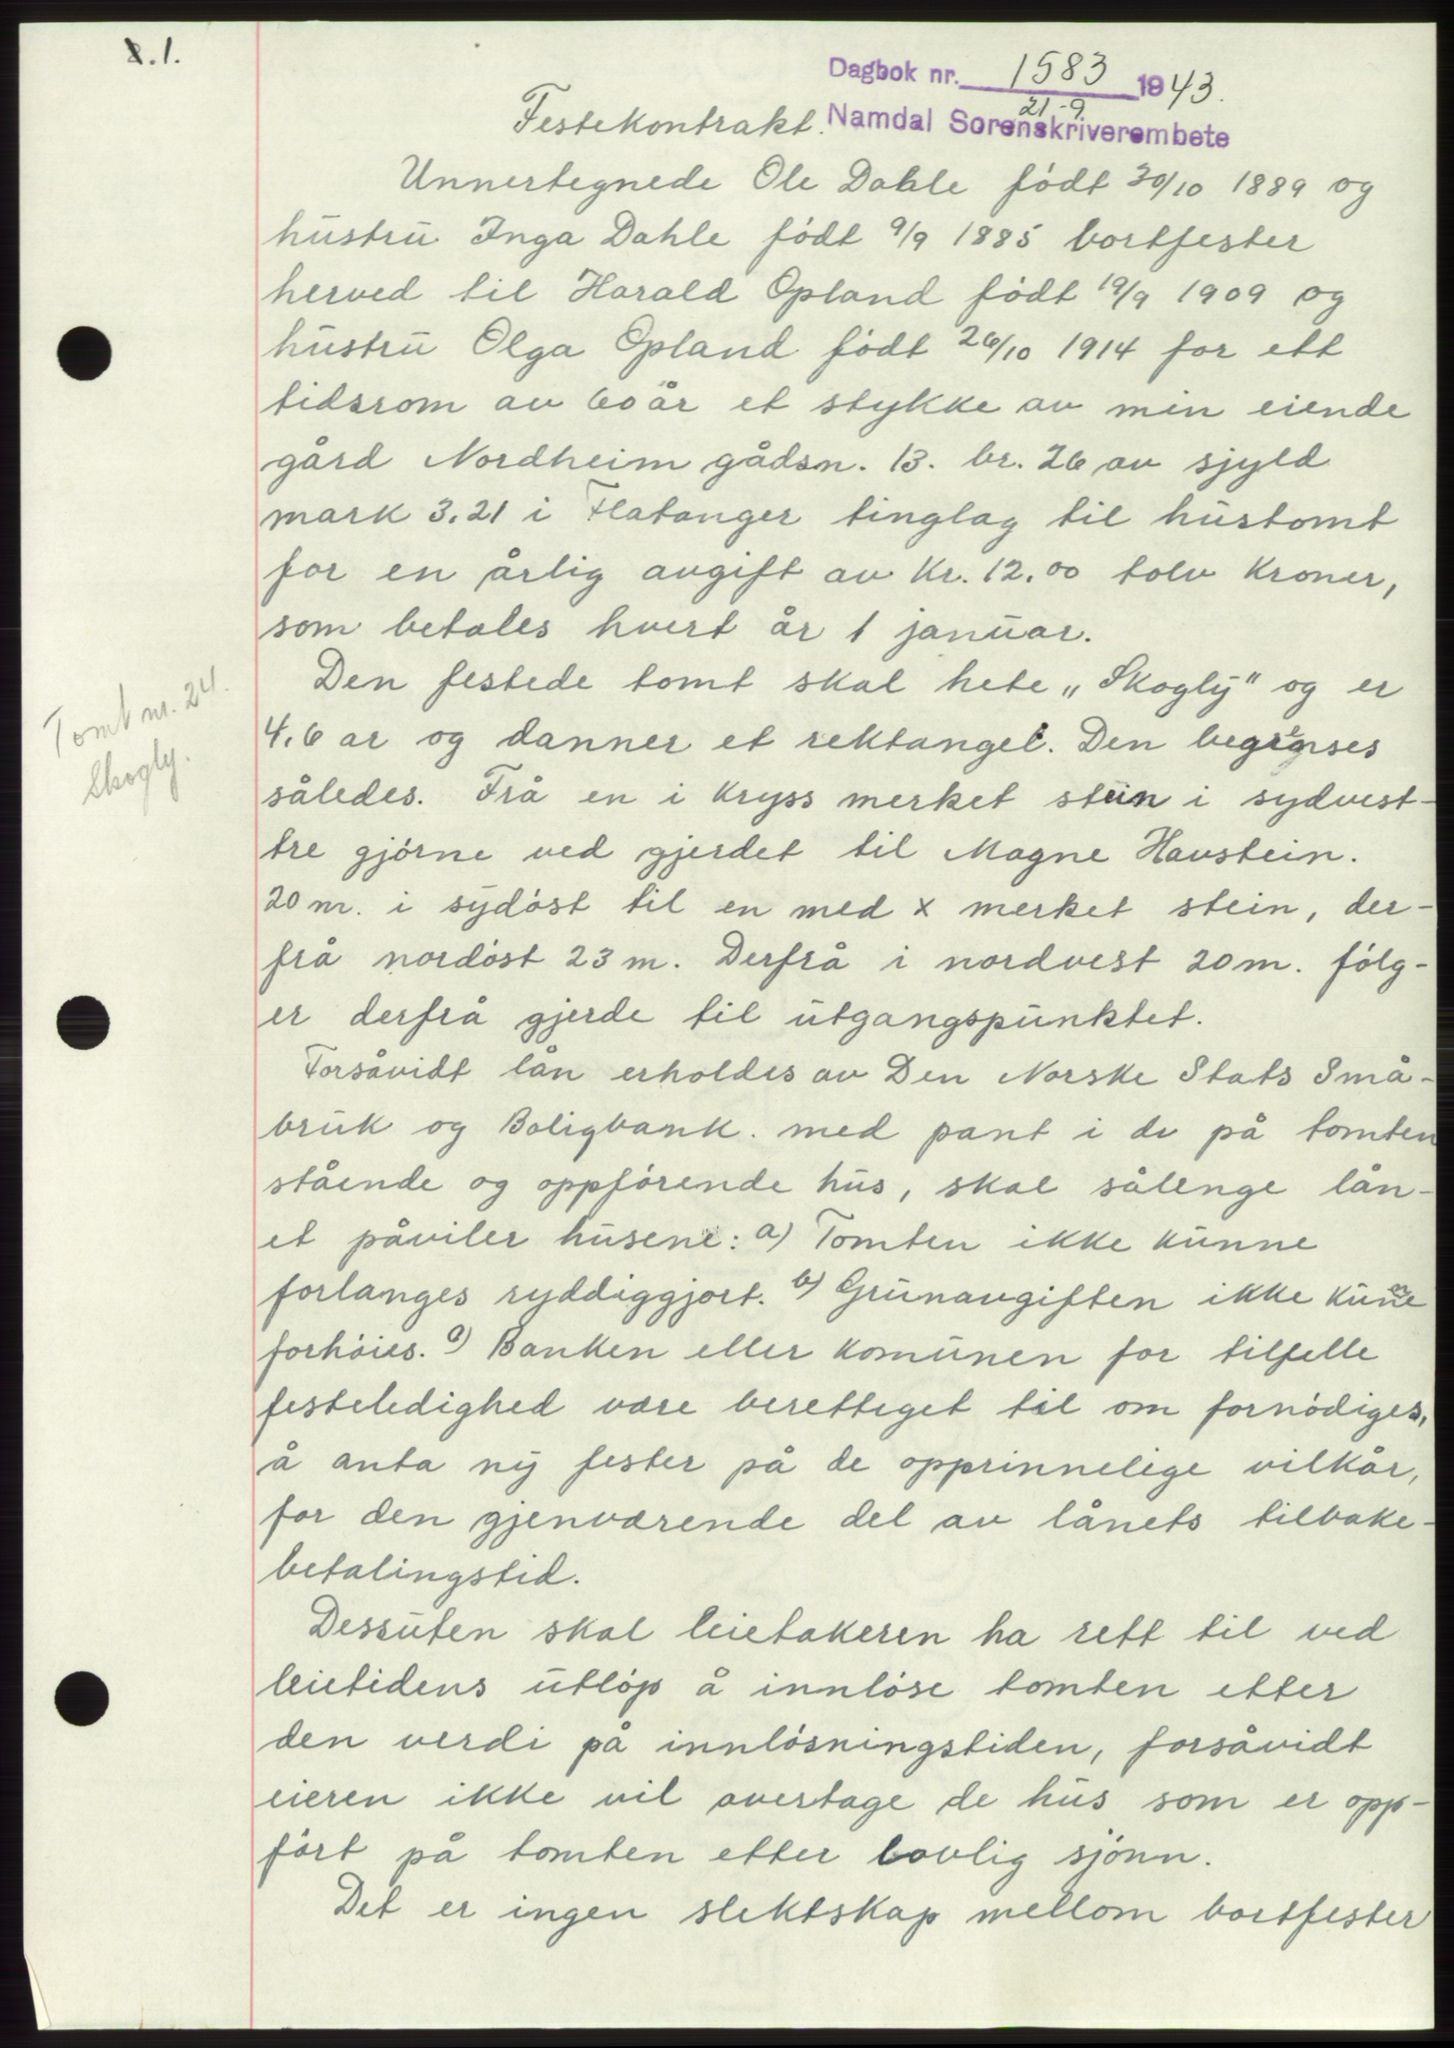 8.1.
Dagbok nr. 1583 1943.
21-9
Namdal Sorenskriverembete
Festekontrakt.
Unnertegnede Ole Dahle födt 30/10 1889 og
hustru Inga Dahle födt 9/9 1885 bortfester
herved til Harald Opland födt 19/9 1909 og
hustru Olga Opland födt 26/10 1914 for ett
tidsrom av 60 år et stykke av min eiende
gård Nordheim gådsn. 13. br. 26 av sjyld
mark 3.21 i Flatanger tinglag til hustomt
for en årlig avgift av Kr. 12.00 tolv Kroner,
som betales hvert år 1 januar.
Den festede tomt skal hete „Skogly" og er
4,6 ar og danner et rektangel. Den begrenses
således. Frå en i Kryss merket stein i sydvest-
tre gjörne ved gjerdet til Magne Havstein.
20 m. i sydöst til en med x merket stein, der-
frå nordöst 23 m. Derfrå i nordvest 20 m. fölg-
er derfrå gjerde til utgangspunktet.
Tomt nr. 24.
Skogly.
Forsåvidt lån erholdes av Den Norske Stats Små-
bruk og Boligbank. med pant i de på tomten
stående og oppförende hus, skal sålenge lån-
et påviler husene: a) Tomten ikke kunne
forlanges ryddiggjort. b) Grunavgiften ikke kunne
forhöies. c) Banken eller Komunen for tilfelle
festeledighed være berettiget til om fornödiges,
å anta ny fester på de opprinnelige vilkår,
for den gjenværende del av lånets tilbake-
betalingstid.
Dessuten skal leietakeren ha rett til ved
leietidens utlöp å innlöse tomten etter
den verdi på innlösningstiden, forsåvidt
eieren ikke vil overtage de hus som er opp-
fört på tomten etter lovlig sjönn.
Det er ingen slektskap mellom bortfester